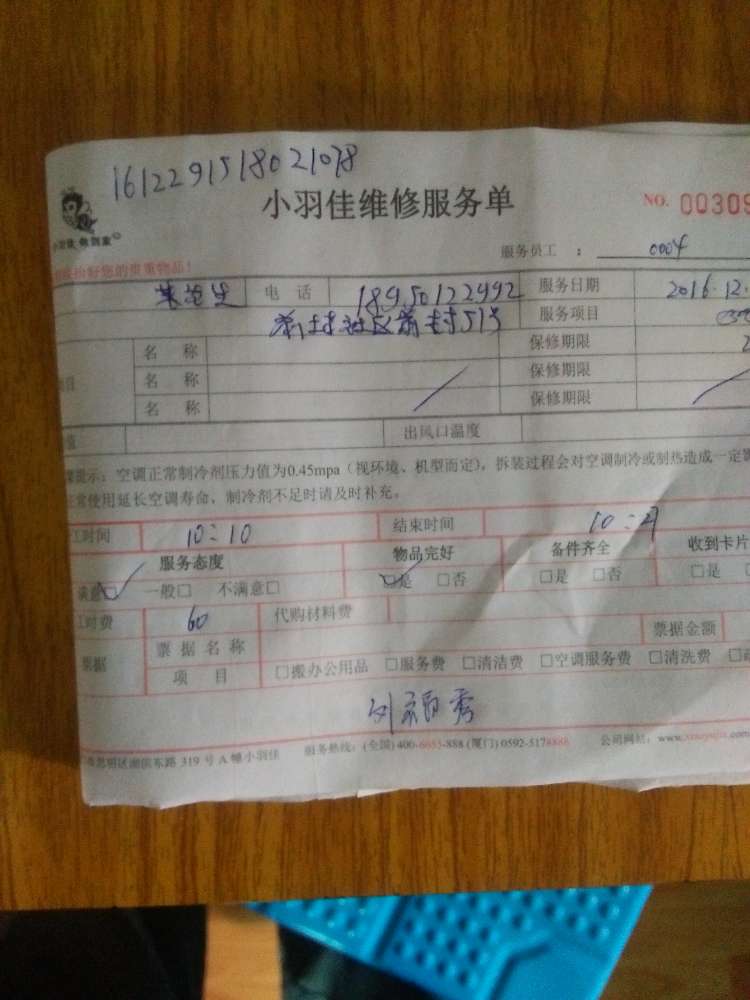 1612291518021078
小羽佳维修服务单
NO. 00309
服务员工 : 0004
您的贵重物品!
电 话 18950122992 服务日期 2016.12.
社区前村513 服务项目
名 称 保修期限
目 名 称 保修期限
名 称 保修期限
值 出风口温度
提示: 空调正常制冷剂压力值为0.45mpa (视环境、机型而定), 拆装过程会对空调制冷或制热造成一定
正常使用延长空调寿命、制冷剂不足时请及时补充。
工时间 10:10 结束时间
服务态度 物品完好 备件齐全 收到卡片
满意□ 一般□ 不满意□ □是 □否 □是 □否 □是
工时费 60 代购材料费
票据 票 据 名 称 票据金额
项 目 □搬办公用品 □服务费 □清洁费 □空调服务费 □清洗费
秀
思明区湖滨东路 319 号 A 幢小羽佳 服务热线: (全国) 400-6655-888 (厦门) 0592-5178888 公司网站: www.xiaoyujia.com